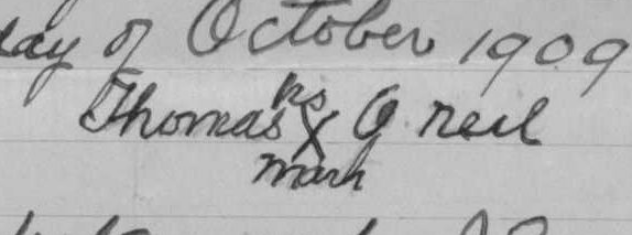 day of October 1909
his
Thomas X O neil
mark